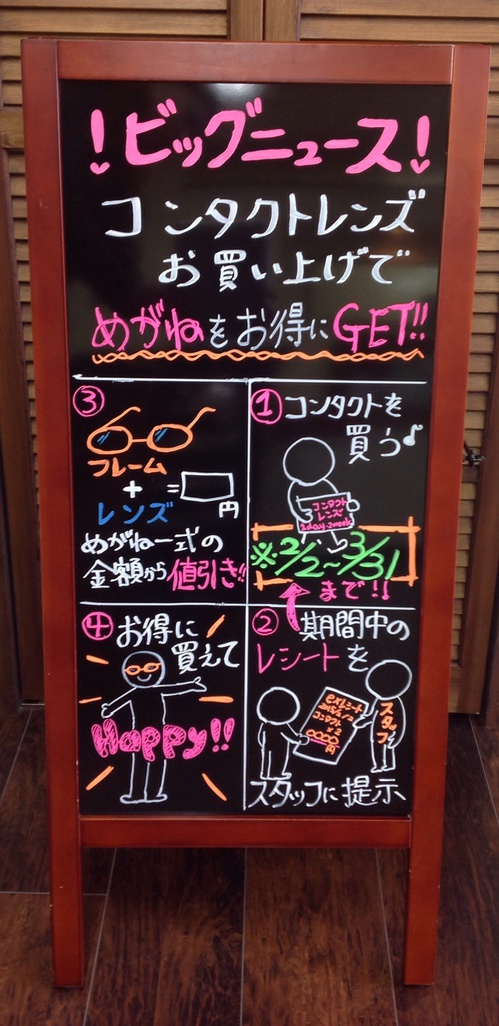 ！ビッグニュース！
コンタクトレンズ
お買い上げで
めがねをお得にGET!!
① コンタクトを
買う♪
コンタクト
レンズ
2day・2week
※2/2〜3/31
まで!!
② 期間中の
レシートを
レシート
コンタクト
×2
円
スタッフ
スタッフに提示
③
フレーム
+
=
円
レンズ
めがね一式の
金額から値引き!!
④ お得に
買えて
Happy!!